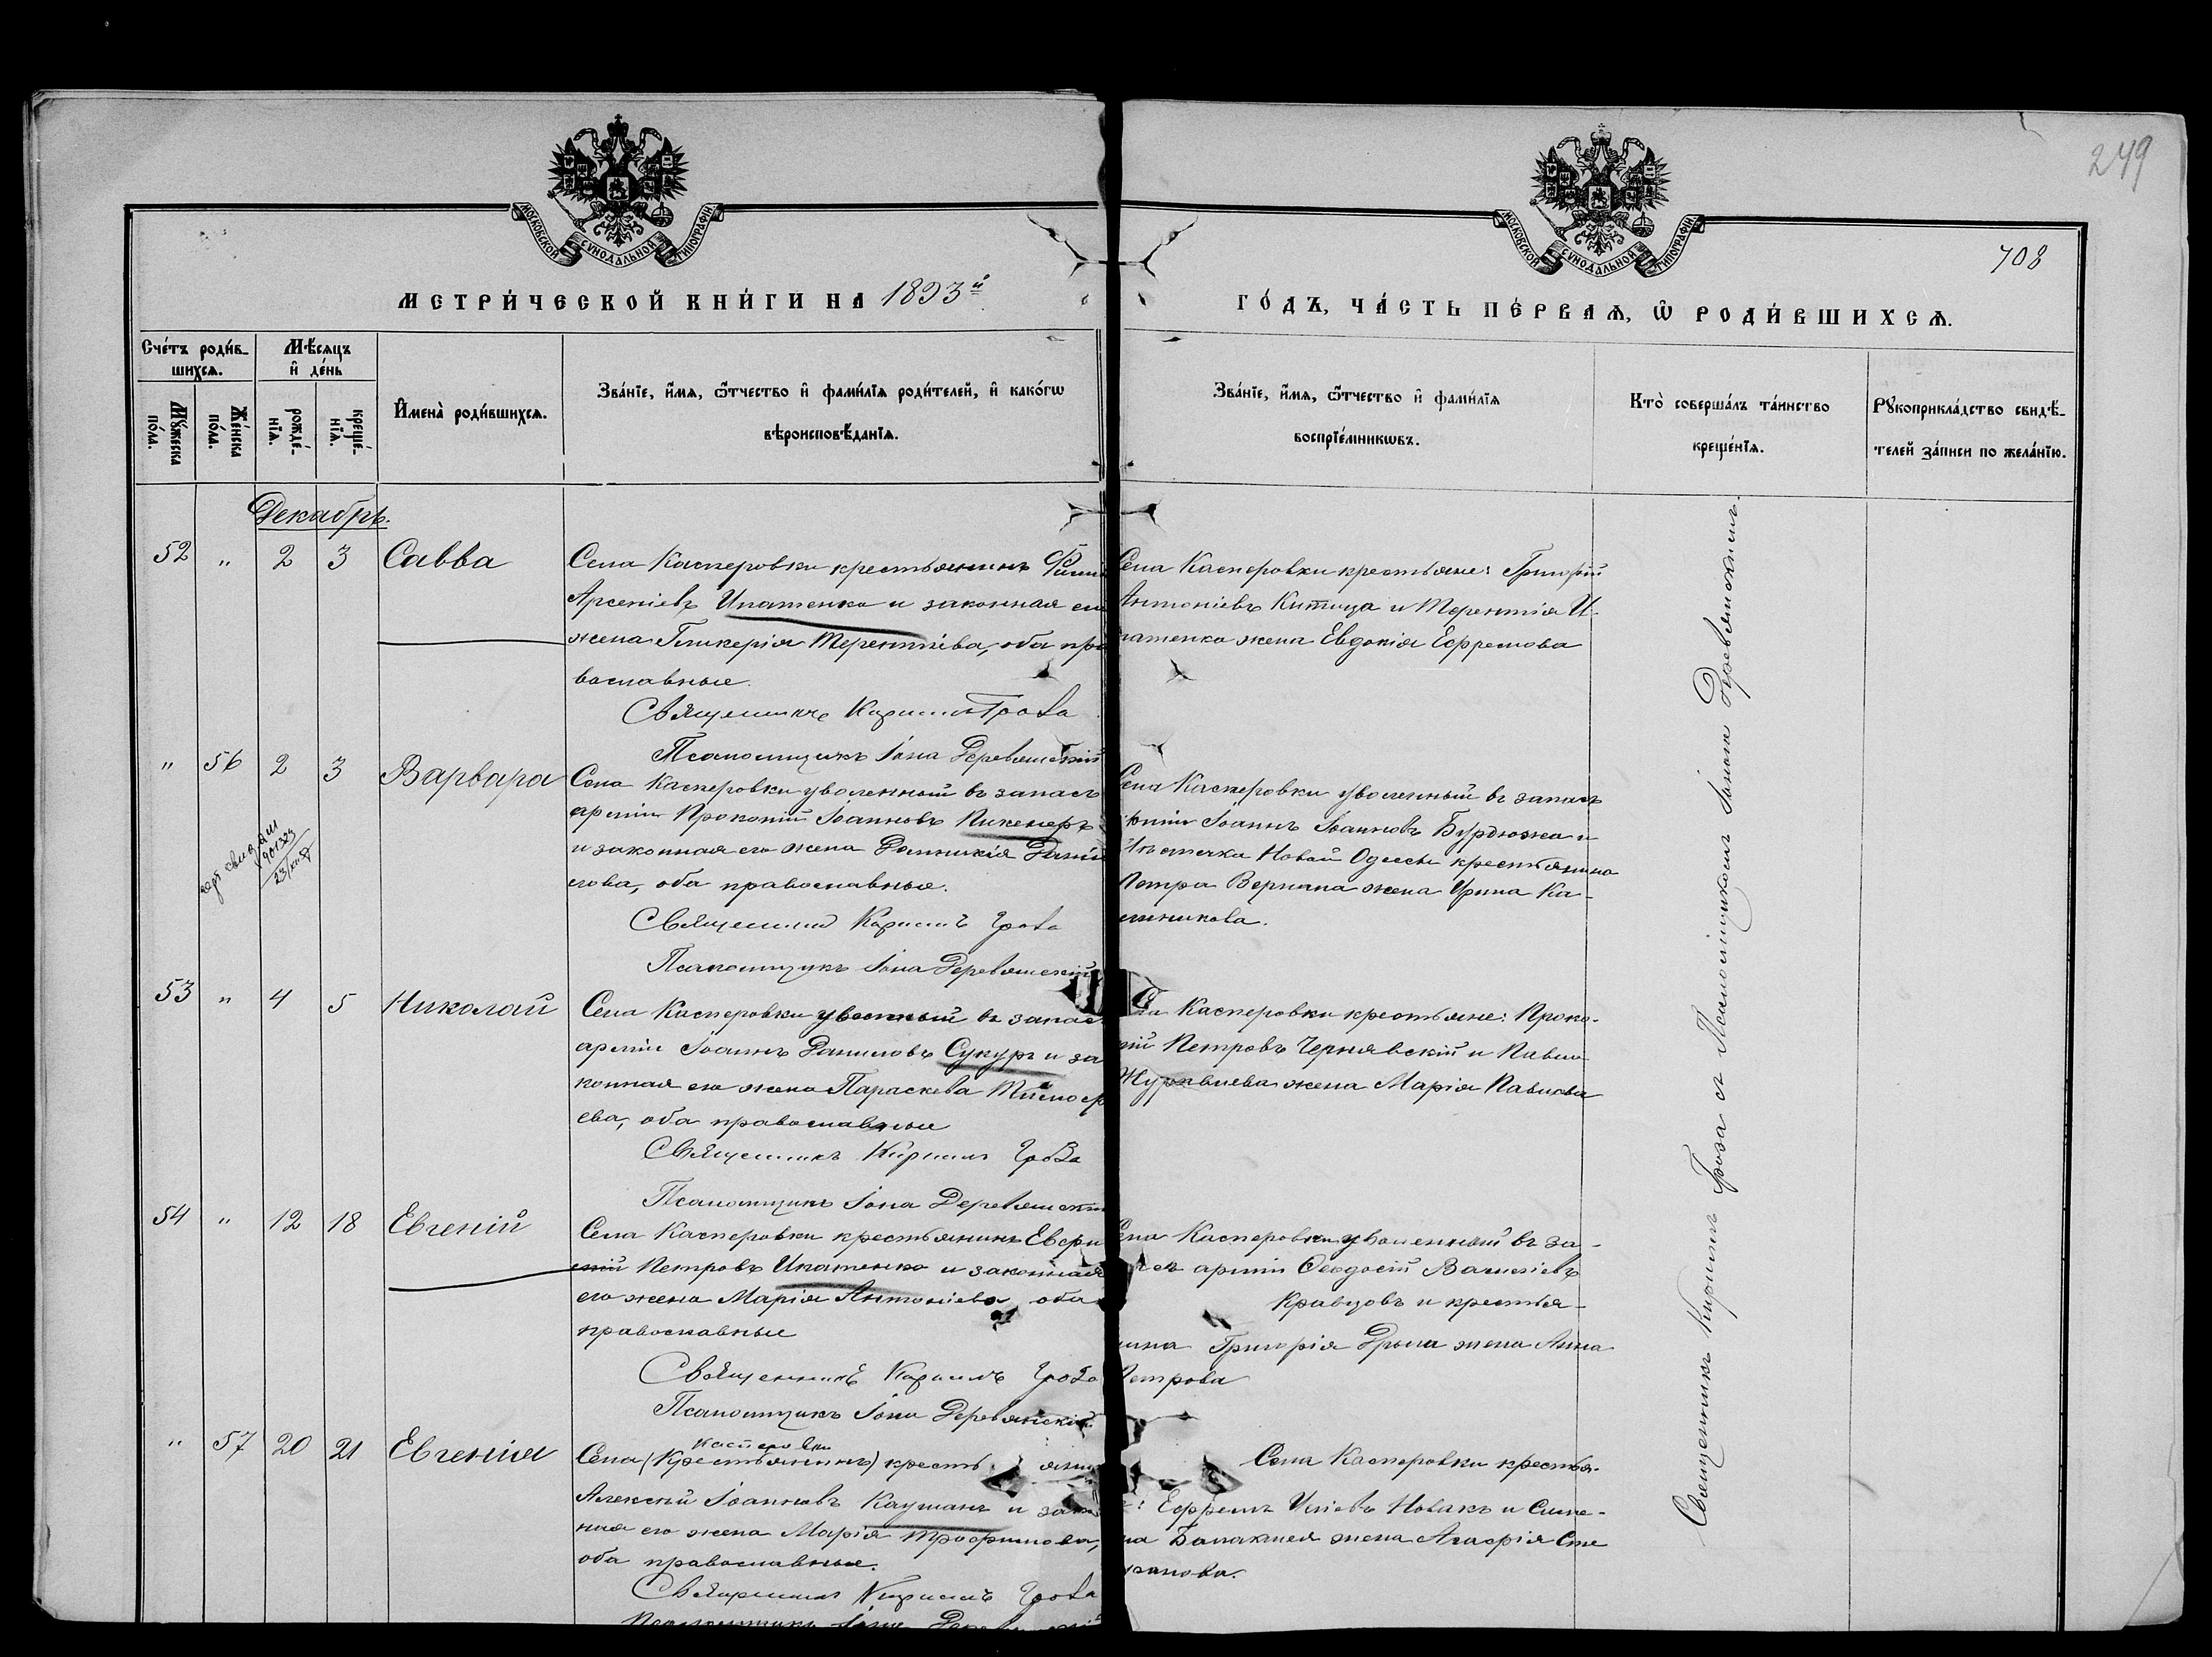 249
708
МОСКОВСКОЙ СѴНОДАЛЬНОЙ ТИПОГРАФІИ
МОСКОВСКОЙ СѴНОДАЛЬНОЙ ТИПОГРАФІИ
МЕТРИ́ЧЕСКОЙ КНИ́ГИ НА 1893й
ГО́ДЪ, ЧА́СТЬ ПЕ́РВАѦ, Ѡ҆ РОДИ́ВШИХСѦ.
Сче́тъ роди́в-
шихсѧ.
Мѣ́сѧцъ
и҆ де́нь
Мꙋ́жеска
по́ла.
Же́нска
по́ла.
рожде́-
нїѧ.
креще́-
нїѧ.
И҆мена̀ роди́вшихсѧ.
Зва́нїе, и҆́мѧ, ѻ҆́тчество и҆ фами́лїѧ роди́телей, и҆ како́гѡ
вѣроисповѣ́данїѧ.
Зва́нїе, и҆́мѧ, ѻ҆́тчество и҆ фами́лїѧ
воспрїе́мникѡвъ.
Кто̀ соверша́лъ та́инство
креще́нїѧ.
Рꙋкоприкла́дство свидѣ́-
телей за́писи по жела́нїю.
Декабрь.
52 " 2 3 Савва
Села Касперовки крестьянинъ
Арсеніевъ Ипатенко и законная его
жена Гликерія Терентіева, оба пра
вославные.
Священникъ Кириллъ Гроза
Псаломщикъ Іона Деревянскій
Села Касперовки крестьяне: Григорій
Антоніевъ Китица и Терентія И-
патенко жена Евдокія Ефремова
" 56 2 3 Варвара
Села Касперовки уволенный въ запасъ
арміи Прокопій Іоанновъ Пикенеръ
и законная его жена Домникія Дани
лова, оба православные.
Священникъ Кириллъ Гроза
Псаломщикъ Іона Деревянскій
Села Касперовки уволенный въ запасъ
арміи Іоаннъ Іоанновъ Бурдюжа и
Мѣстечка Новой Одессы крестьянина
Петра Вернана жена Ирина Ка-
линикова.
53 " 4 5 Николай
Села Касперовки уволенный въ запасъ
арміи Іоаннъ Даниловъ Сукуръ и за
конная его жена Параскева Тимоф
еева, оба православные
Священникъ Кириллъ Гроза
Псаломщикъ Іона Деревянскій
Села Касперовки крестьяне: Проко-
пій Петровъ Чернявскій и Павла
Журавлева жена Марія Павлова
54 " 12 18 Евгеній
Села Касперовки крестьянинъ Евѳи
мій Петровъ Ипатенко и законная
его жена Марія Антоніева оба
православные
Священникъ Кириллъ Гроза
Псаломщикъ Іона Деревянскій
Села Касперовки уволенный въ за-
пасъ арміи Ѳеодосій Василіевъ
Кравцовъ и крестья-
нина Григорія Дрыга жена Анна
Петрова
" 57 20 21 Евгенія
Касперовки
Села (Крестьянинъ) крестьянинъ
Алексій Іоанновъ Кауманъ и закон
ная его жена Марія Трофимова,
оба православные.
Священникъ Кириллъ Гроза
Псаломщикъ Іона Деревянскій
Села Касперовки крестья-
не: Ефремъ Иліевъ Новакъ и Симе-
она Балакшея жена Агафія Сте
панова.
Священникъ Кириллъ Гроза съ Псаломщикомъ Іоною Деревянскимъ